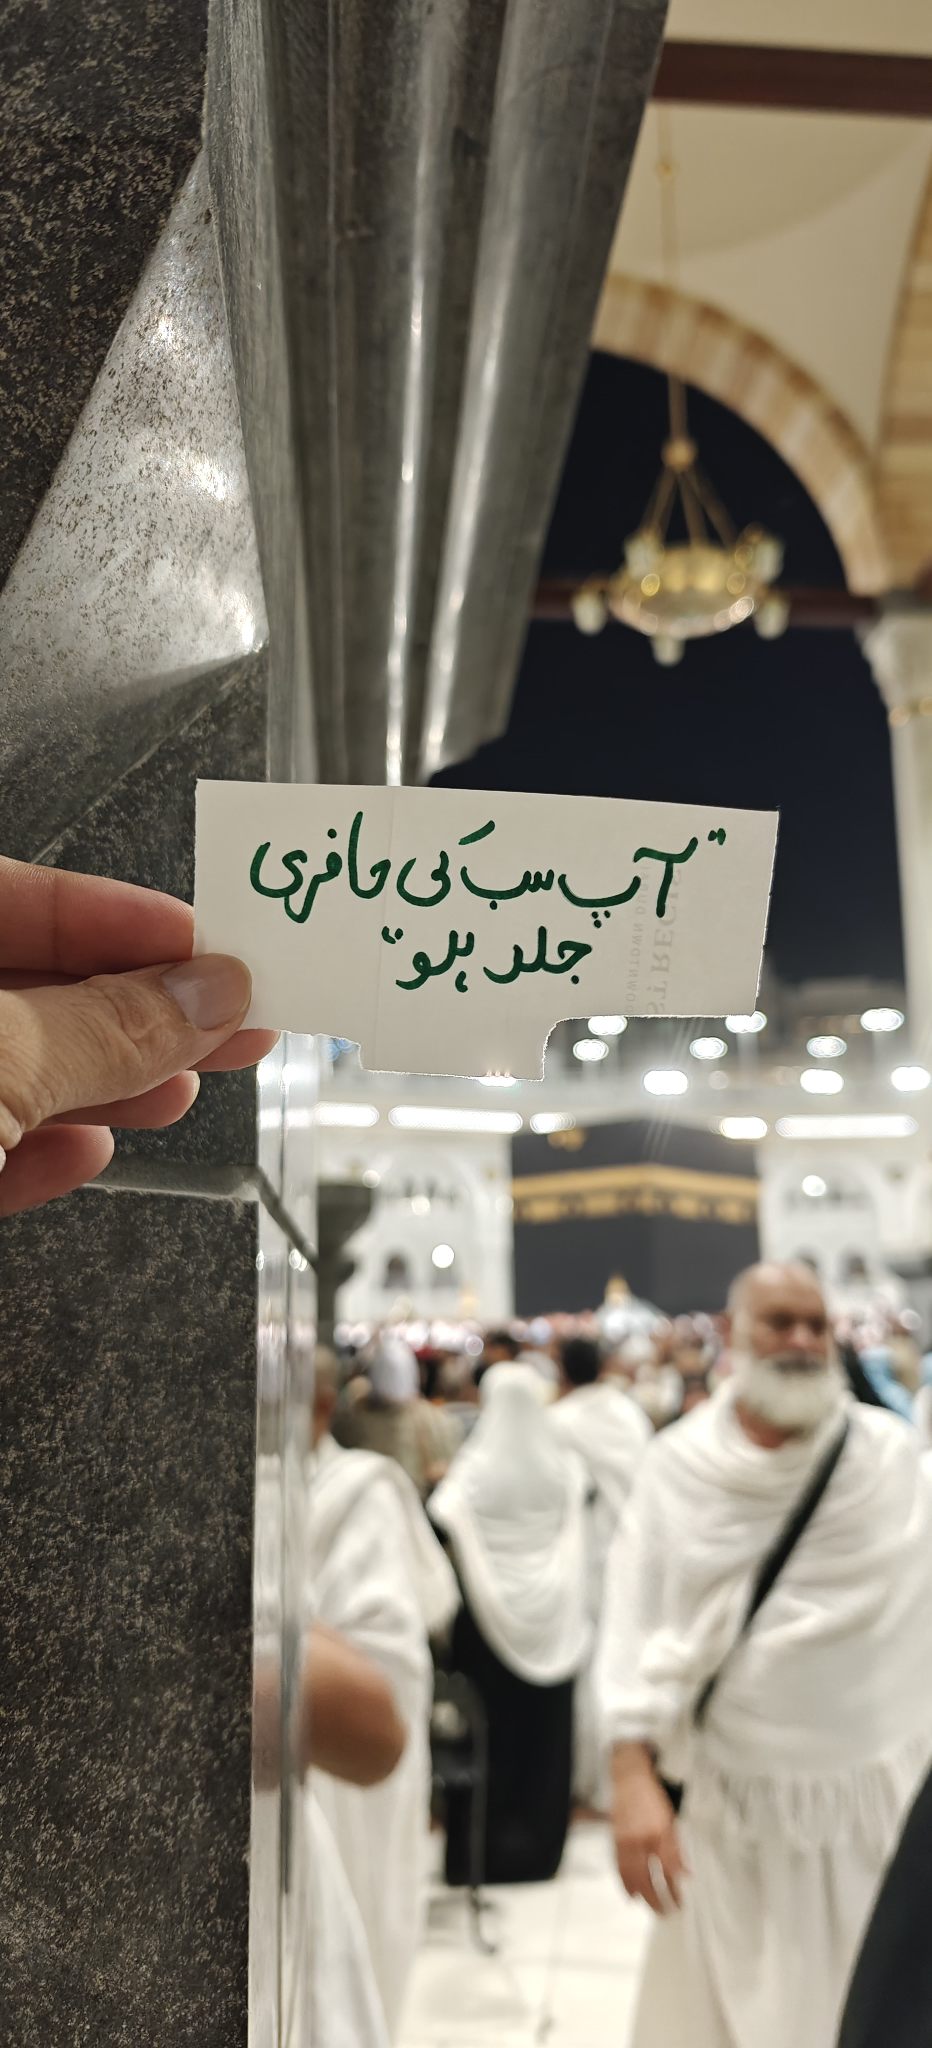 "آپ سب کی حافری
جلد ہلو"